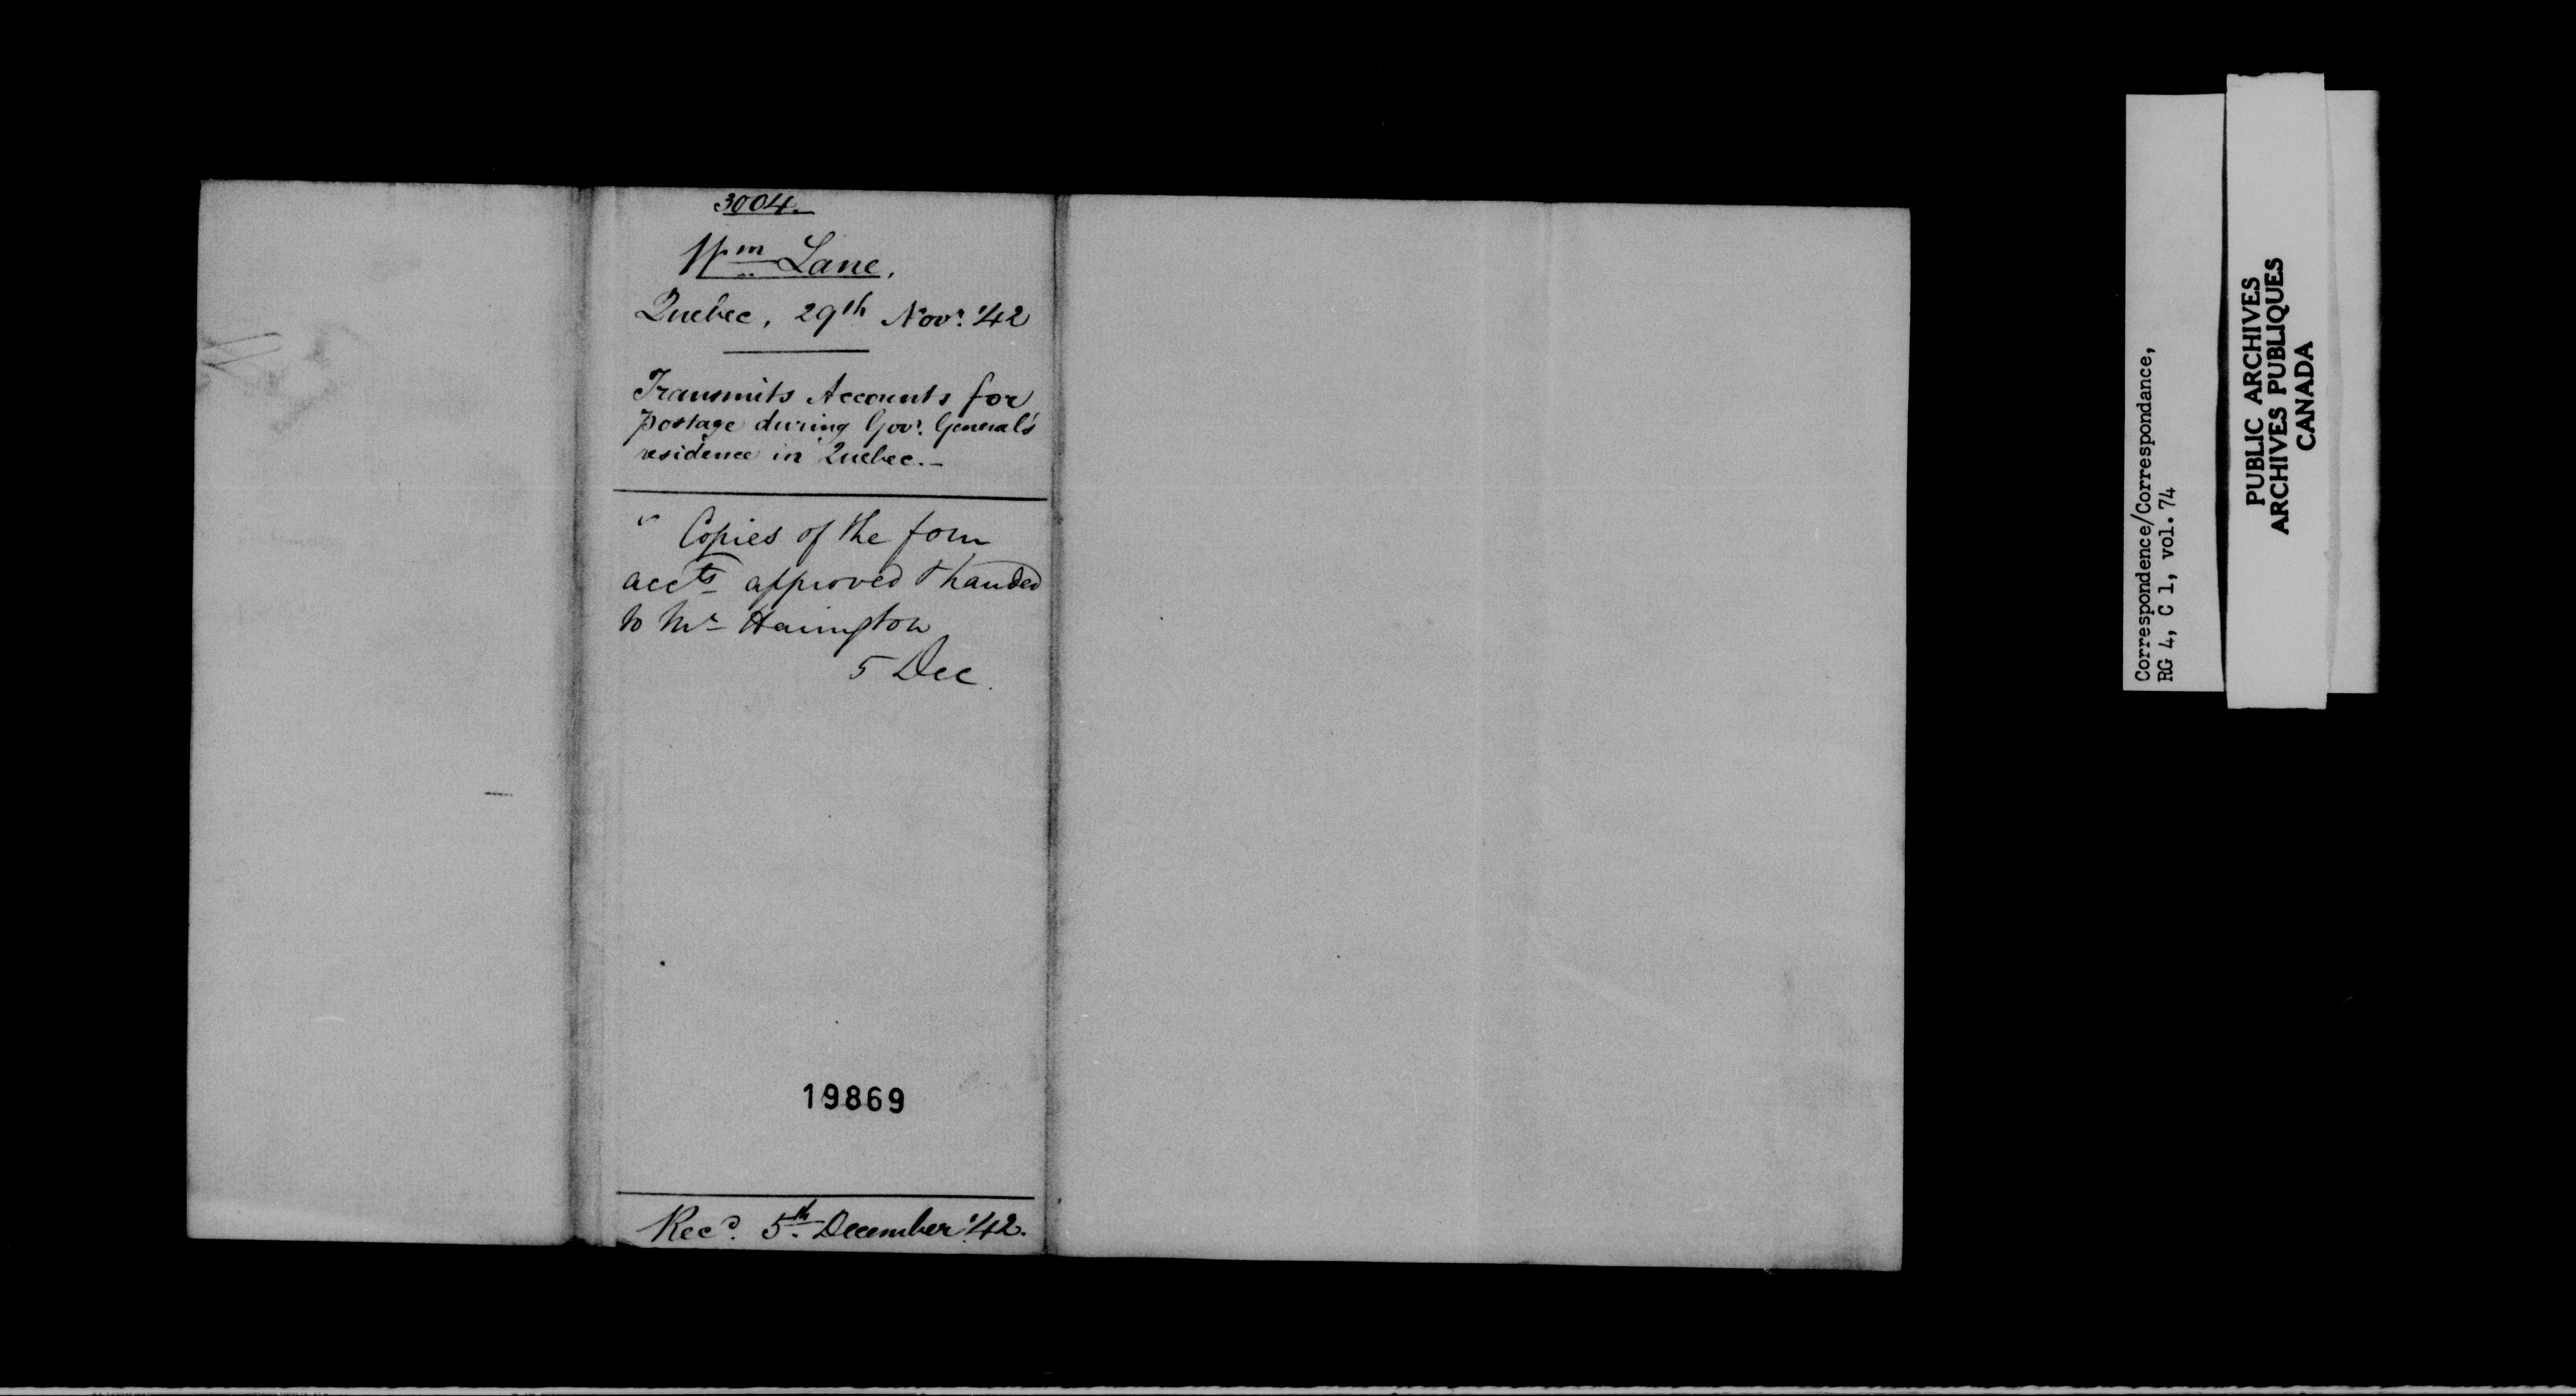 3004.
Wm Lane,
Quebec, 29th Novr. '42
Transmits Accounts for
postage during Govr. General's
residence in Quebec.-
Copies of the four
accts approved & handed
to Mr Harrington
5 Dec.
19869
Recd. 5th December '42.
Correspondence/Correspondance,
RG 4, C 1, vol. 74
PUBLIC ARCHIVES
ARCHIVES PUBLIQUES
CANADA